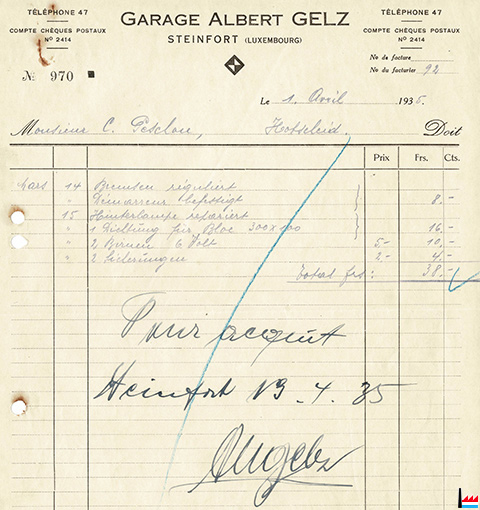 TÉLÉPHONE 47
COMPTE CHÈQUES POSTAUX
Nº 2414
GARAGE ALBERT GELZ
STEINFORT (LUXEMBOURG)
TÉLÉPHONE 47
COMPTE CHÈQUES POSTAUX
Nº 2414
Nº 970
No de facture
No du facturier 92
Le 1. Avril 1935.
Monsieur C. Hotscheid. Doit
Prix Frs. Cts.
Mars 14 Bremsen réguliert
" Démarreur befestigt 8.-
15 Hinterlampe repariert
" 1 Dichtung für Bloc 300x100 16.-
" 2 Birnen 6 Volt 5.- 10.-
" 2 Sicherungen 2.- 4.-
Total frs: 38.-
Pour acquit
Steinfort 19.4.35